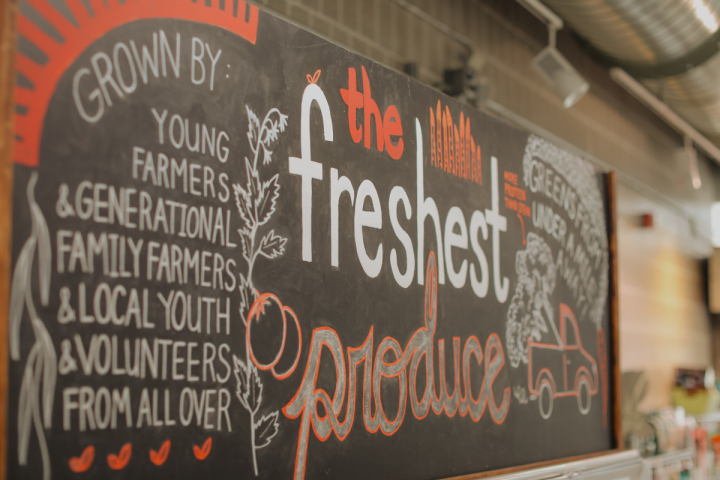 GROWN BY:
YOUNG
FARMERS
& GENERATIONAL
FAMILY FARMERS
& LOCAL YOUTH
& VOLUNTEERS
FROM ALL OVER
the
freshest
produce
MORE
PROTEIN
THAN
GREENS
UNDER A MILE
AWAY